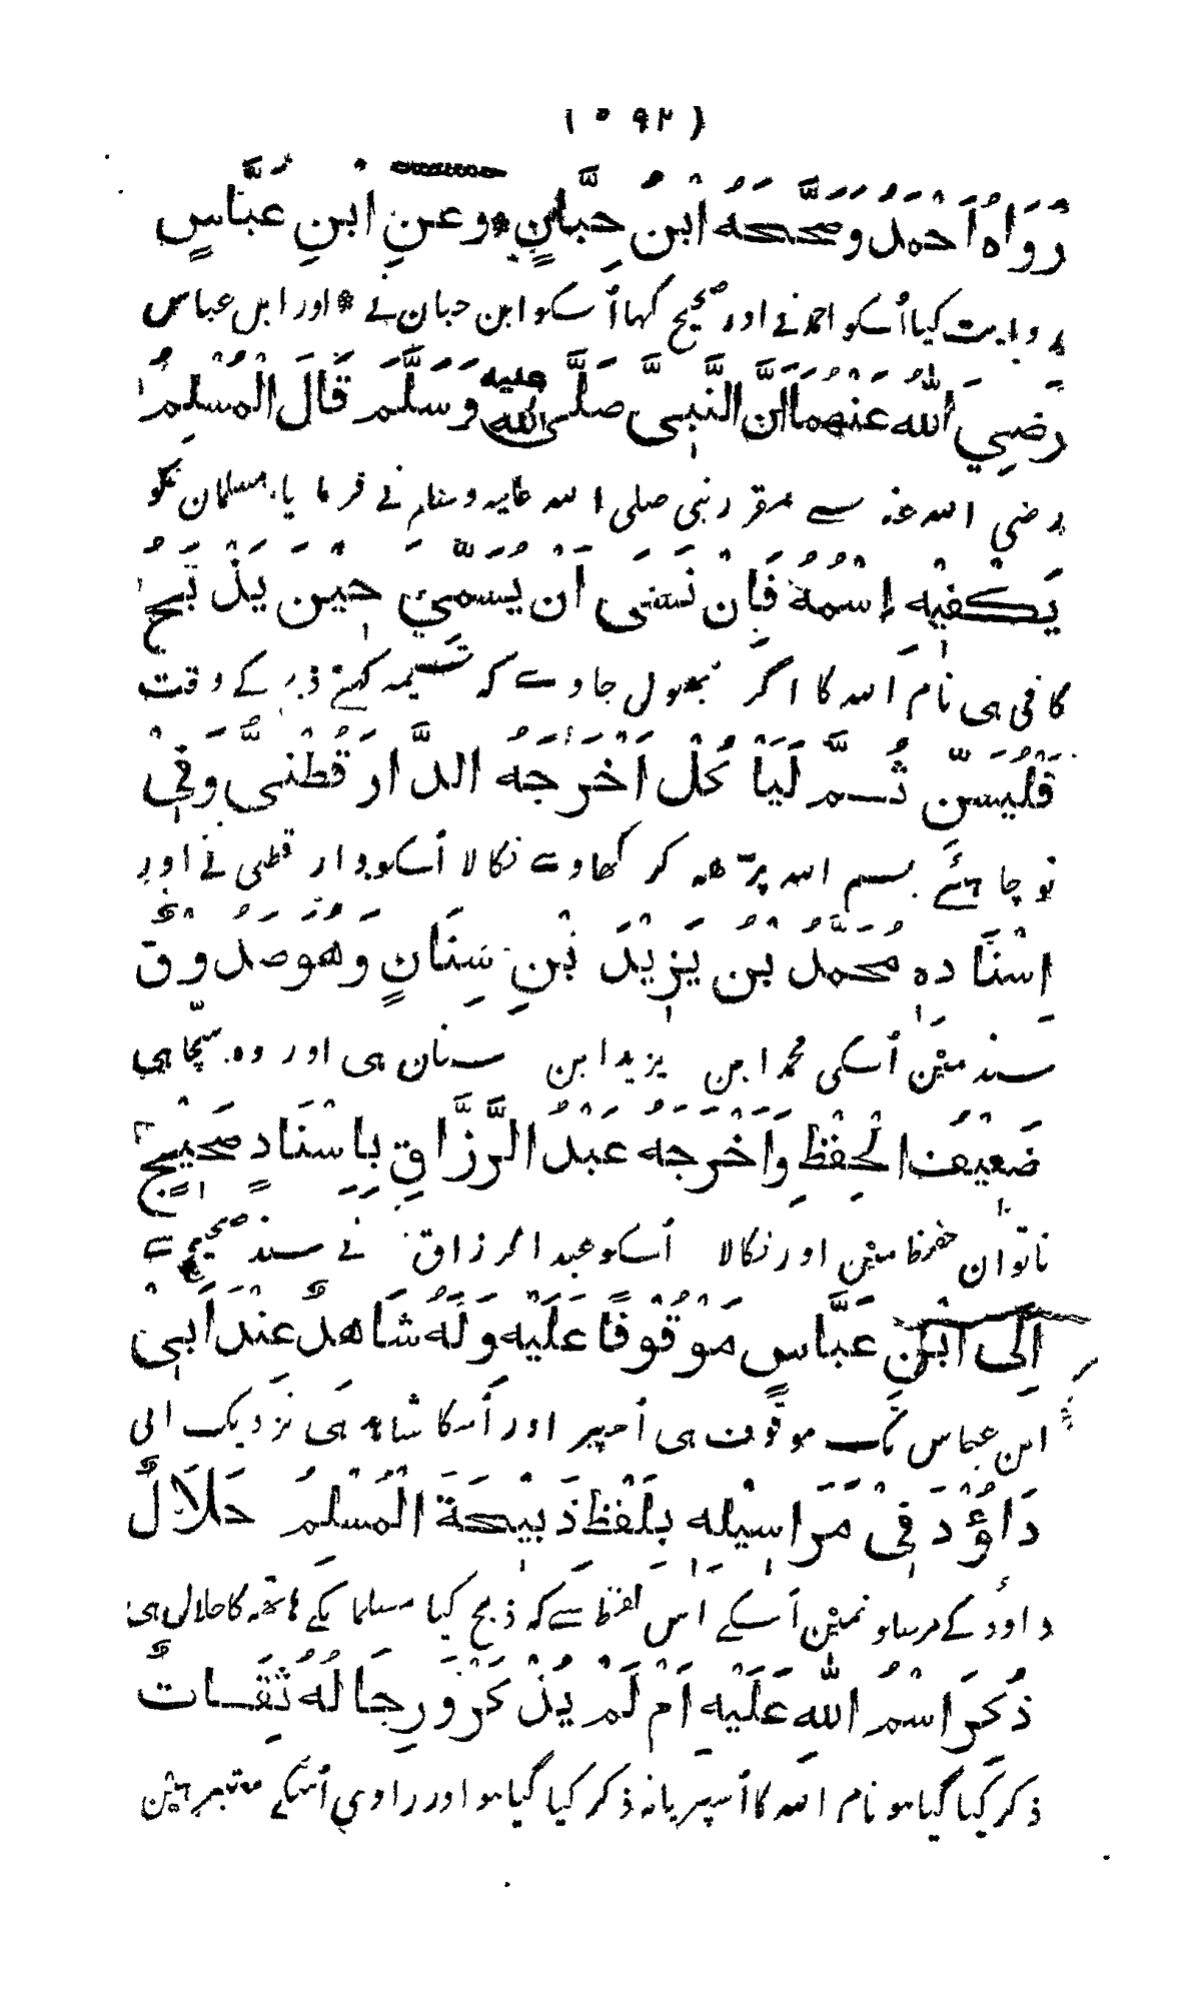 ( ۵۹۲ )
رَوَاهُ اَحْمَدُ وَصَحَّحَهُ ابْنُ حِبَّانٍ * وَعَنِ ابْنِ عَبَّاسٍ
روایت کیا اُسکو احمد نے اور صحیح کہا اُسکو ابن حبان نے * اور ابن عباس
رَضِيَ اللّٰهُ عَنْهُمَا اَنَّ النَّبِىَّ صَلَّى اللّٰهُ عليه وَسَلَّمَ قَالَ الْمُسْلِمُ
رضی اللہ عنہ سے مقرر نبی صلی اللہ علیہ وسلم نے فرمایا مسلمان کو
يَكْفِيْهِ اِسْمُهُ فَاِنْ نَسِىَ اَنْ يُسَمِّيَ حِيْنَ يَذْبَحُ
کافی ہی نام اللہ کا اگر بھول جاوے کہ تسمیہ کہتے ذبح کے وقت
فَلْيُسَمِّ ثُمَّ لْيَأْكُلْ اَخْرَجَهُ الدَّارَقُطْنِىُّ وَفِىْ
تو چاہئے بسم اللہ پڑھہ کر کھاوے نکالا اُسکو دار قطنی نے اور
اِسْنَادِهِ مُحَمَّدُ بْنُ يَزِيْدَ بْنِ سِنَانٍ وَهُوَ صَدُوْقٌ
سند مین اُسکی محمد ابن یزید ابن سنان ہی اور وہ سچا ہی
ضَعِيْفُ الْحِفْظِ وَاَخْرَجَهُ عَبْدُ الرَّزَّاقِ بِاِسْنَادٍ صَحِيْحٍ
ناتوان حفظ مین اور نکالا اُسکو عبد الرزاق نے سند صحیح سے
اِلَى ابْنِ عَبَّاسٍ مَوْقُوْفًا عَلَيْهِ وَلَهُ شَاهِدٌ عِنْدَ اَبِىْ
ابن عباس تک موقوف ہی اُسپر اور اُسکا شاہد ہی نزدیک ابی
دَاوُٗدَ فِىْ مَرَاسِيْلِهِ بِلَفْظِ ذَبِيْحَةُ الْمُسْلِمِ حَلَالٌ
داوُد کے مرسلونمین اُسکے اس لفظ سے کہ ذبح کیا مسلمانکے ہاتھہ کا حلال ہی
ذُكِرَ اسْمُ اللّٰهِ عَلَيْهِ اَمْ لَمْ يُذْكَرْ وَرِجَالُهُ ثِقَاتٌ
ذکر کیا گیا ہو نام اللہ کا اُسپر یا نہ ذکر کیا گیا ہو اور راوی اُسکے معتبر ہین